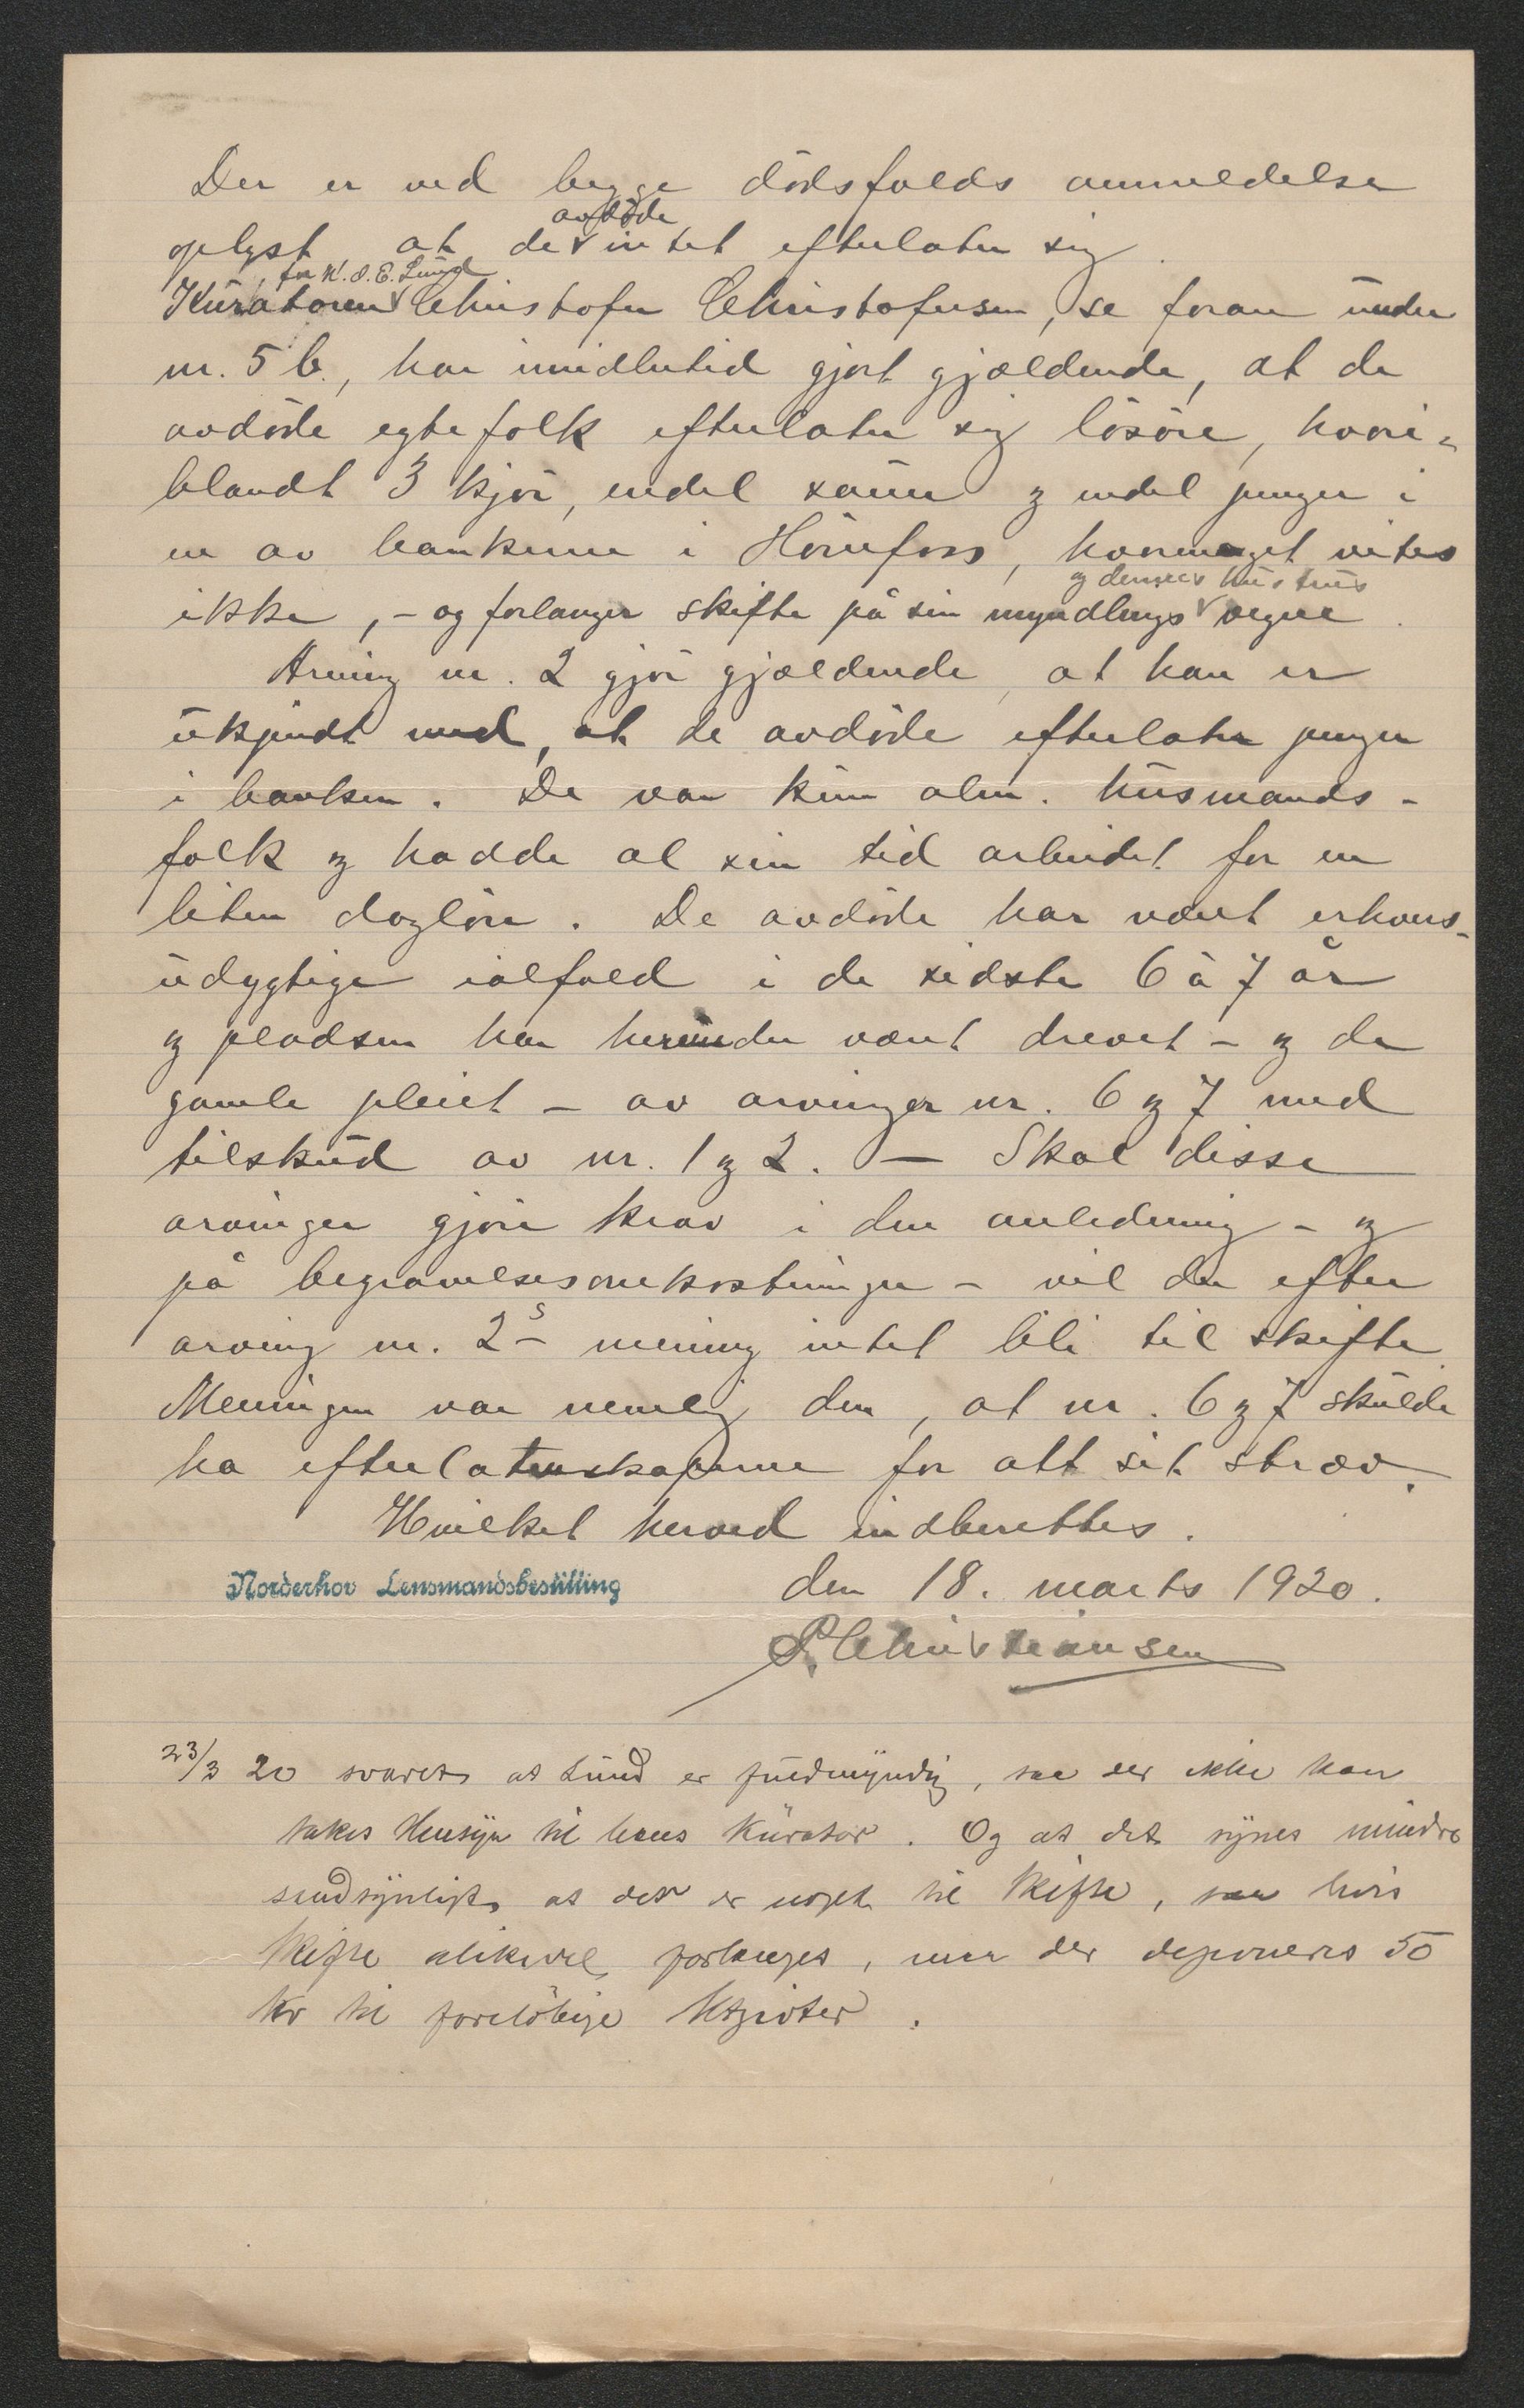 Der er ved begge dödsfalds anmeldelse
avdöde
oplyst at de intet efterlater sig.
for K. O. E. Lund
Kuratoren Christofer Christofersen, se foran under
nr. 5 b., har imidlertid gjort gjældende, at de
avdöde egtefolk efterlater sig lösöre, hvori-
blandt 3 kjör, endel sauer og endel penger i
en av bankerne i Hönefoss, hvormeget vites
og dennes hustrus
ikke, - og forlanger skifte på sin myndlings vegne.
Arving nr. 2 gjör gjældende, at han er
ukjendt med, at de avdöde efterlater penger
i banken. De var kun alm. husmands-
folk og hadde al sin tid arbeidet for en
liten daglön. De avdöde har været erhvers-
udygtige ialfald i de sidste 6 à 7 år
og pladsen har herunder været drevet - og de
gamle pleiet - av arvinger nr. 6 og 7 med
tilskud av nr. 1 og 2. — Skal disse
arvinger gjöre krav i den anledning - og
på begravelsesomkostninger - vil der efter
arving nr. 2s mening intet bli til skifte.
Meningen var nemlig den, at nr. 6 og 7 skulde
ha efterlatenskaperne for alt sit stræv.
Hvilket herved indberettes.
Norderhov Lensmandsbestilling den 18. marts 1920.
P. Christiansen
23/3 20 svaret at Lund er fuldmyndig, saa der ikke kan
takes Hensyn til hans Kurator. Og at det synes mindre
sandsynligt, at der er noget til Skifte, saa hvis
Skifte alikevel forlanges, maa der deponeres 50
Kr til foreløbige Utgivter.